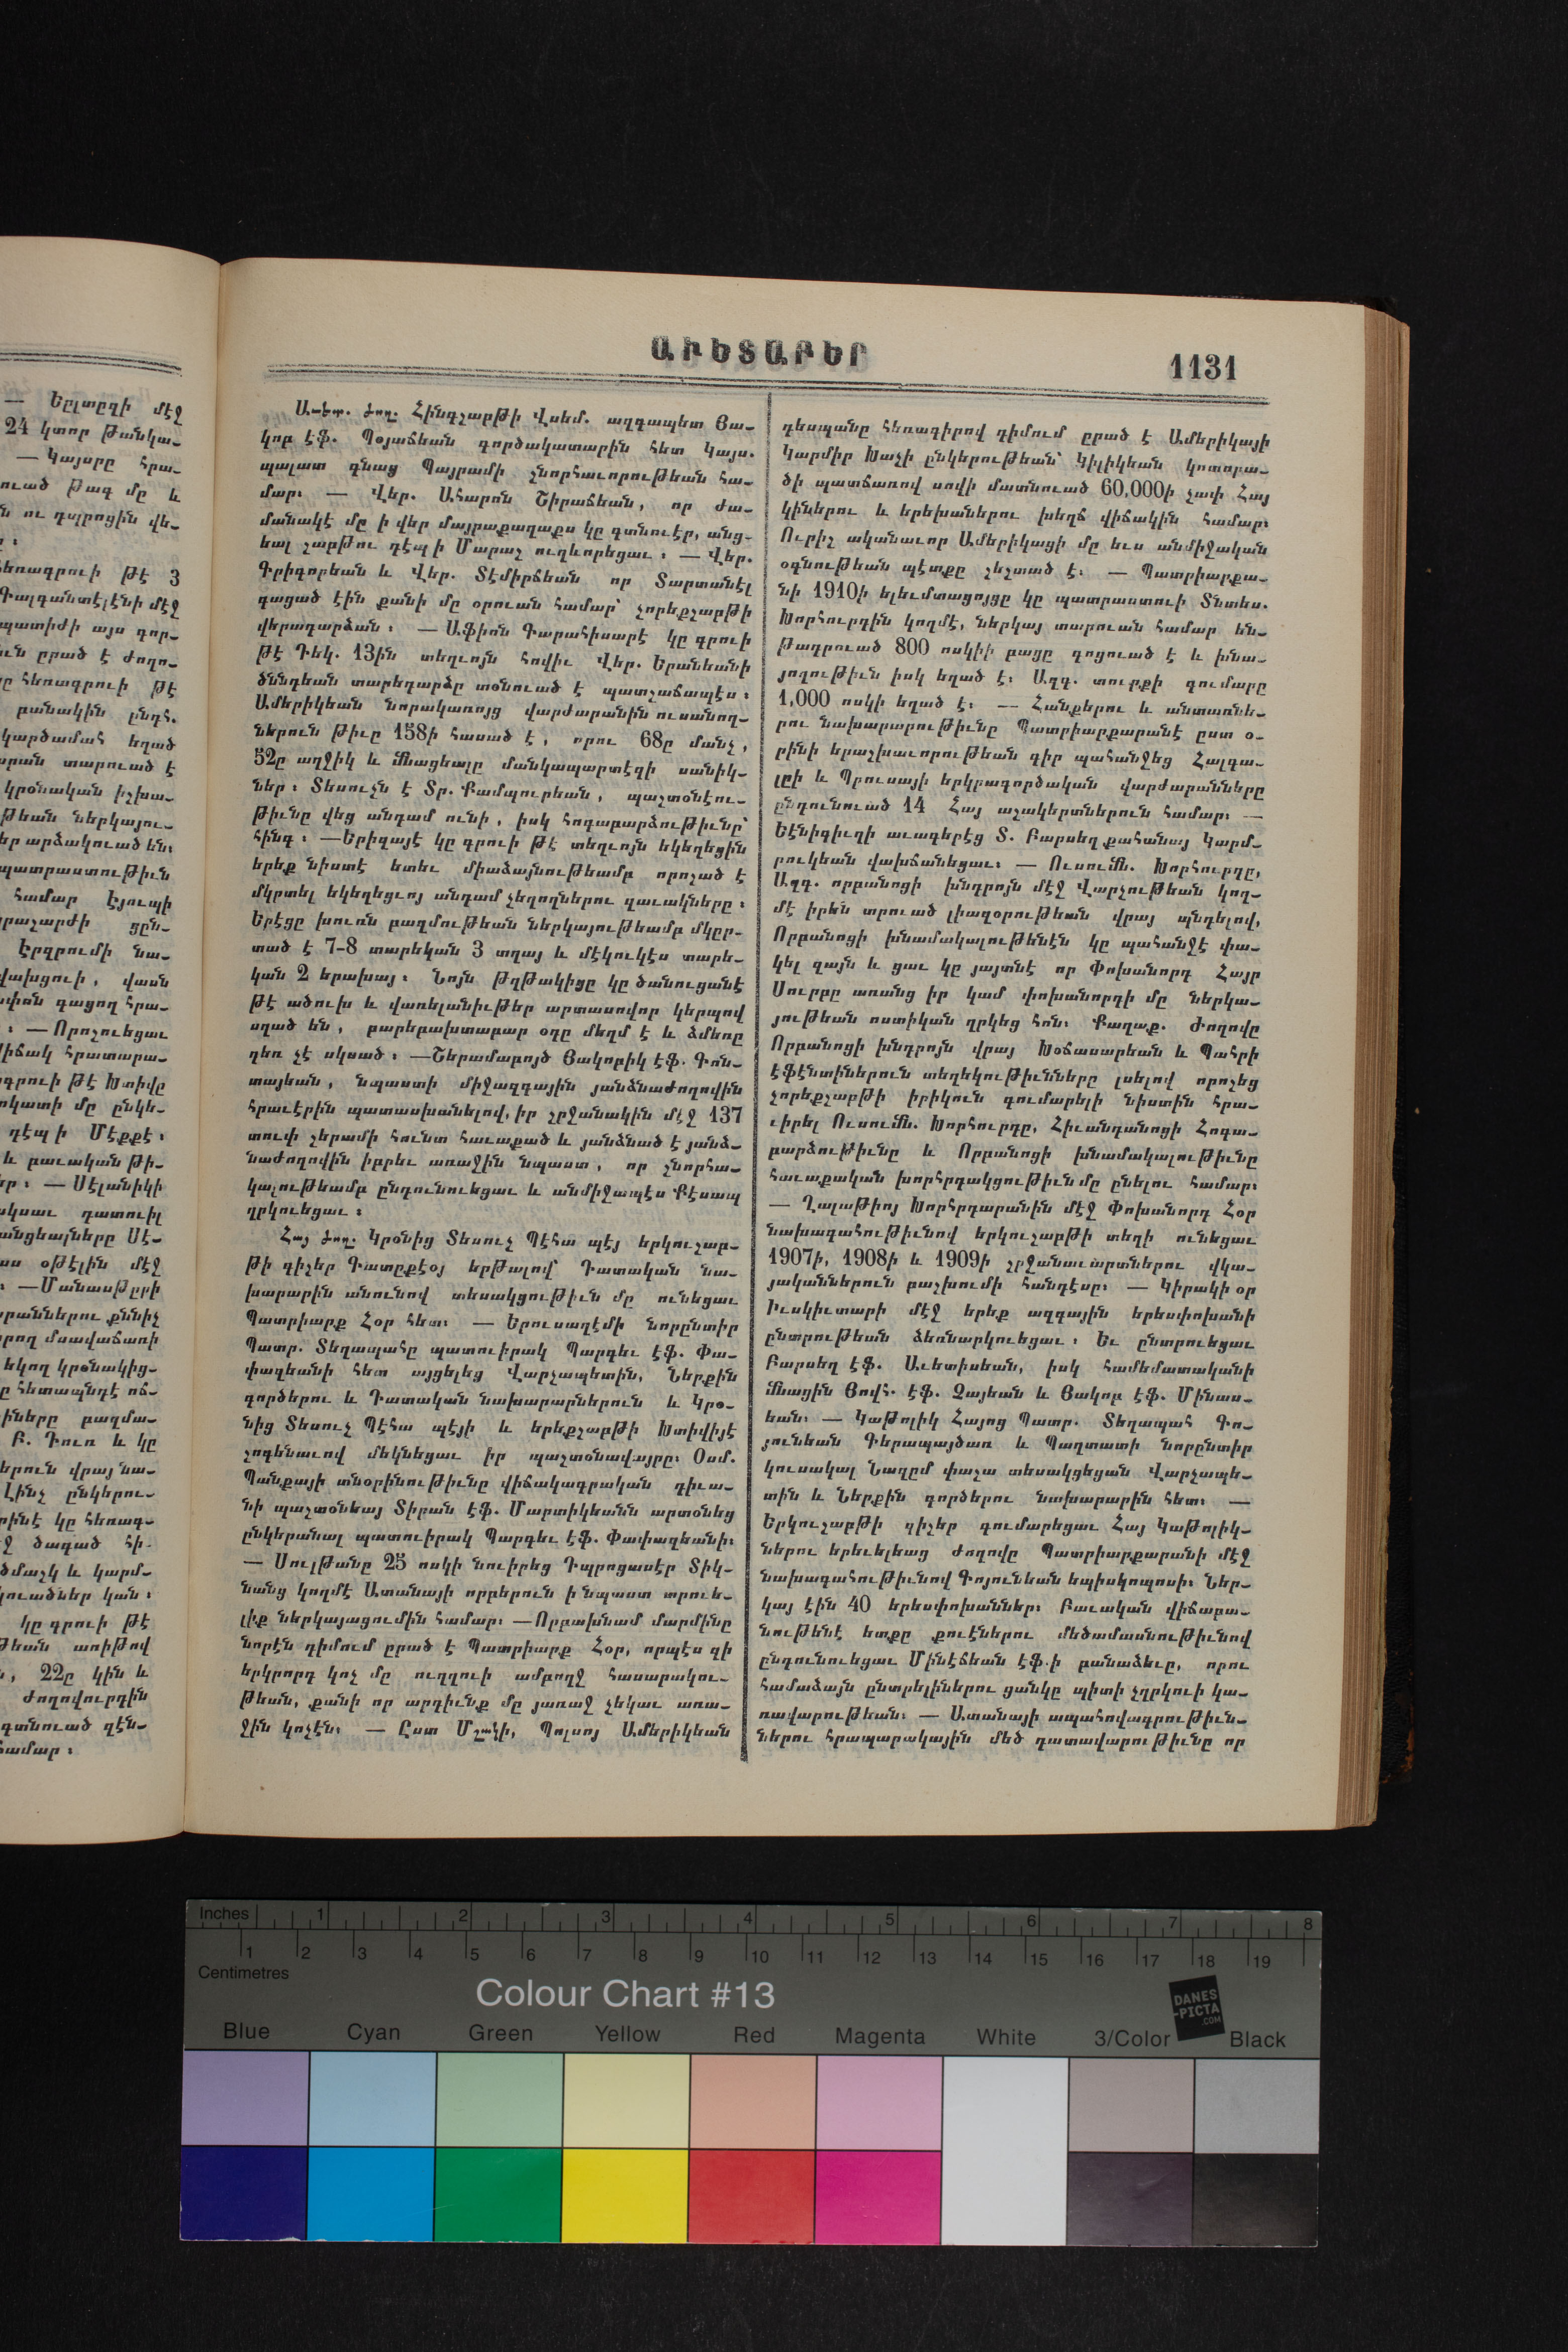 ԱՒԵՏԱԲԵՐ
1131
Աւետ. ժող. Հինգշաբթի Վսեմ. ազգապետ Յա-
կոբ էֆ. Պօյաճեան գործակատարին հետ Կայս.
պալատ գնաց Պայրամի շնորհաւորութեան հա-
մար։ — Վեր. Ահարոն Շիրաճեան, որ ժա-
մանակէ մը ի վեր մայրաքաղաքս կը գտնուէր, անց-
եալ շաբթու դէպ ի Մարաշ ուղևորեցաւ։ — Վեր.
Գրիգորեան և Վեր. Տէմիրճեան որ Տարտանէլ
գացած էին քանի մը օրուան համար՝ չորեքշաբթի
վերադարձան։ — Աֆիոն Գարահիսարէ կը գրուի
թէ Դեկ. 13ին տեղւոյն հովիւ Վեր. Երանեանի
ծննդեան տարեդարձը տօնուած է պատշաճապէս։
Ամերիկեան նորակառոյց վարժարանին ուսանող-
ներուն թիւը 158ի հասած է, որու 68ը մանչ,
52ը աղջիկ և մնացեալը մանկապարտէզի սանիկ-
ներ։ Տեսուչն է Տր. Քամպուրեան, պաշտօնէու-
թիւնը վեց անդամ ունի, իսկ հոգաբարձութիւնը՝
հինգ։ —Երիզայէ կը գրուի թէ տեղւոյն եկեղեցին
երեք նիստէ ետեւ միաձայնութեամբ որոշած է
մկրտել եկեղեցւոյ անդամ չեղողներու զաւակները։
Երէցը խուռն բազմութեան ներկայութեամբ մկըր-
տած է 7-8 տարեկան 3 տղայ և մէկուկէս տարե-
կան 2 երախայ։ Նոյն թղթակիցը կը ծանուցանէ
թէ ածուխ և վառելանիւթեր արտասովոր կերպով
սղած են, բարեբախտաբար օդը մեղմ է և ձմեռը
դեռ չէ սկսած։ —Շերամաբոյծ Յակոբիկ էֆ. Գոն-
տայեան, նպաստի միջազգային յանձնաժողովին
հրաւէրին պատասխանելով, իր շրջանակին մէջ 137
տուփ շերամի հունտ հաւաքած և յանձնած է յանձ-
նաժողովին իբրեւ առաջին նպաստ, որ շնորհա-
կալութեամբ ընդունուեցաւ և անմիջապէս Քէսապ
ղրկուեցաւ։
Հայ ժող. Կրօնից Տեսուչ Պէհա պէյ երկուշաբ-
թի գիշեր Գատըքէօյ երթալով Դատական նա-
խարարին անունով տեսակցութիւն մը ունեցաւ
Պատրիարք Հօր հետ։ — Երուսաղէմի նորընտիր
Պատր. Տեղապահը պատուիրակ Պարգեւ էֆ. Փա-
փազեանի հետ այցելեց Վարչապետին, Ներքին
գործերու և Դատական նախարարներուն և Կրօ-
նից Տեսուչ Պէհա պէյի և երեքշաբթի Խտիվիյէ
շոգենաւով մեկնեցաւ իր պաշտօնավայրը։ Օսմ.
Պանքայի տնօրինութիւնը վիճակագրական դիւա-
նի պաշտօնեայ Տիրան էֆ. Մարտիկեանն արտօնեց
ընկերանալ պատուիրակ Պարգեւ էֆ. Փափազեանի։
— Սուլթանը 25 ոսկի նուիրեց Դպրոցասէր Տիկ-
նանց կողմէ Ատանայի որբերուն ի նպաստ տրուե-
լիք ներկայացումին համար։ —Որբախնամ մարմինը
նորէն դիմում ըրած է Պատրիարք Հօր, որպէս զի
երկրորդ կոչ մը ուղղուի ամբողջ հասարակու-
թեան, քանի որ արդիւնք մը յառաջ չեկաւ առա-
ջին կոչէն։ — Ըստ Մշակի, Պոլսոյ Ամերիկեան
դեսպանը հեռագիրով դիմում ըրած է Ամերիկայի
Կարմիր Խաչի ընկերութեան՝ Կիլիկեան կոտորա-
ծի պատճառով սովի մատնուած 60,000ի չափ Հայ
կիներու և երեխաներու խեղճ վիճակին համար։
Ուրիշ ականաւոր Ամերիկացի մը եւս անմիջական
օգնութեան պէտքը շեշտած է։ — Պատրիարքա-
նի 1910ի ելեւմտացոյցը կը պատրաստուի Տնտես.
Խորհուրդին կողմէ, ներկայ տարուան համար են-
թադրուած 800 ոսկիի բացը գոցուած է և խնա-
յողութիւն իսկ եղած է։ Ազգ. տուրքի գումարը
1,000 ոսկի եղած է։ — Հանքերու և անտառնե-
րու նախարարութիւնը Պատրիարքարանէ ըստ օ-
րինի երաշխաւորութեան գիր պահանջեց Հալգա-
լըի և Պրուսայի երկրագործական վարժարանները
ընդունուած 14 Հայ աշակերտներուն համար։ —
Եէնիգիւղի աւագերէց Տ. Բարսեղ քահանայ Կարմ-
րուկեան վախճանեցաւ։ — Ուսումն. Խորհուրդը,
Ազգ. որբանոցի խնդրոյն մէջ Վարչութեան կող-
մէ իրեն տրուած լիազօրութեան վրայ պնդելով,
Որբանոցի խնամակալութենէն կը պահանջէ փա-
կել զայն և ցաւ կը յայտնէ որ Փոխանորդ Հայր
Սուրբը առանց իր կամ փոխանորդի մը ներկա-
յութեան ոստիկան ղրկեց հոն։ Քաղաք. Ժողովը
Որբանոցի խնդրոյն վրայ Խօճասարեան և Պահրի
էֆէնտիներուն տեղեկութիւնները լսելով որոշեց
չորեքշաբթի իրիկուն գումարելի նիստին հրա-
ւիրել Ուսումն. Խորհուրդը, Հիւանդանոցի Հոգա-
բարձութիւնը և Որբանոցի խնամակալութիւնը
հաւաքական խորհրդակցութիւն մը ընելու համար։
— Ղալաթիոյ Խորհրդարանին մէջ Փոխանորդ Հօր
նախագահութիւնով երկուշաբթի տեղի ունեցաւ
1907ի, 1908ի և 1909ի շրջանաւարտներու վկա-
յականներուն բաշխումի հանդէսը։ — Կիրակի օր
Իւսկիւտարի մէջ երեք ազգային երեսփոխանի
ընտրութեան ձեռնարկուեցաւ։ Եւ ընտրուեցաւ
Բարսեղ էֆ. Աւետիսեան, իսկ համեմատականի
մնացին Յովհ. էֆ. Չայեան և Յակոբ էֆ. Մինաս-
եան։ — Կաթոլիկ Հայոց Պատր. Տեղապահ Գո-
յունեան Գերապայծառ և Պաղտատի նորընտիր
կուսակալ Նազըմ փաշա տեսակցեցան Վարչապե-
տին և Ներքին գործերու նախարարին հետ։ —
Երկուշաբթի գիշեր գումարեցաւ Հայ Կաթոլիկ-
ներու երեւելեաց Ժողովը Պատրիարքարանի մէջ
նախագահութիւնով Գոյունեան եպիսկոպոսի։ Ներ-
կայ էին 40 երեսփոխաններ։ Բաւական վիճաբա-
նութենէ ետքը քուէներու մեծամասնութիւնով
ընդունուեցաւ Մինէճեան էֆ.ի բանաձեւը, որու
համաձայն ընտրելիներու ցանկը պիտի չղրկուի կա-
ռավարութեան։ — Ատանայի ապահովագրութիւն-
ներու հրապարակային մեծ դատավարութիւնը որ
Inches 1 2 3 4 5 6 7 8
1 2 3 4 5 6 7 8 9 10 11 12 13 14 15 16 17 18 19
Centimetres
Colour Chart #13
DANES
-PICTA
.COM
Blue Cyan Green Yellow Red Magenta White 3/Color Black